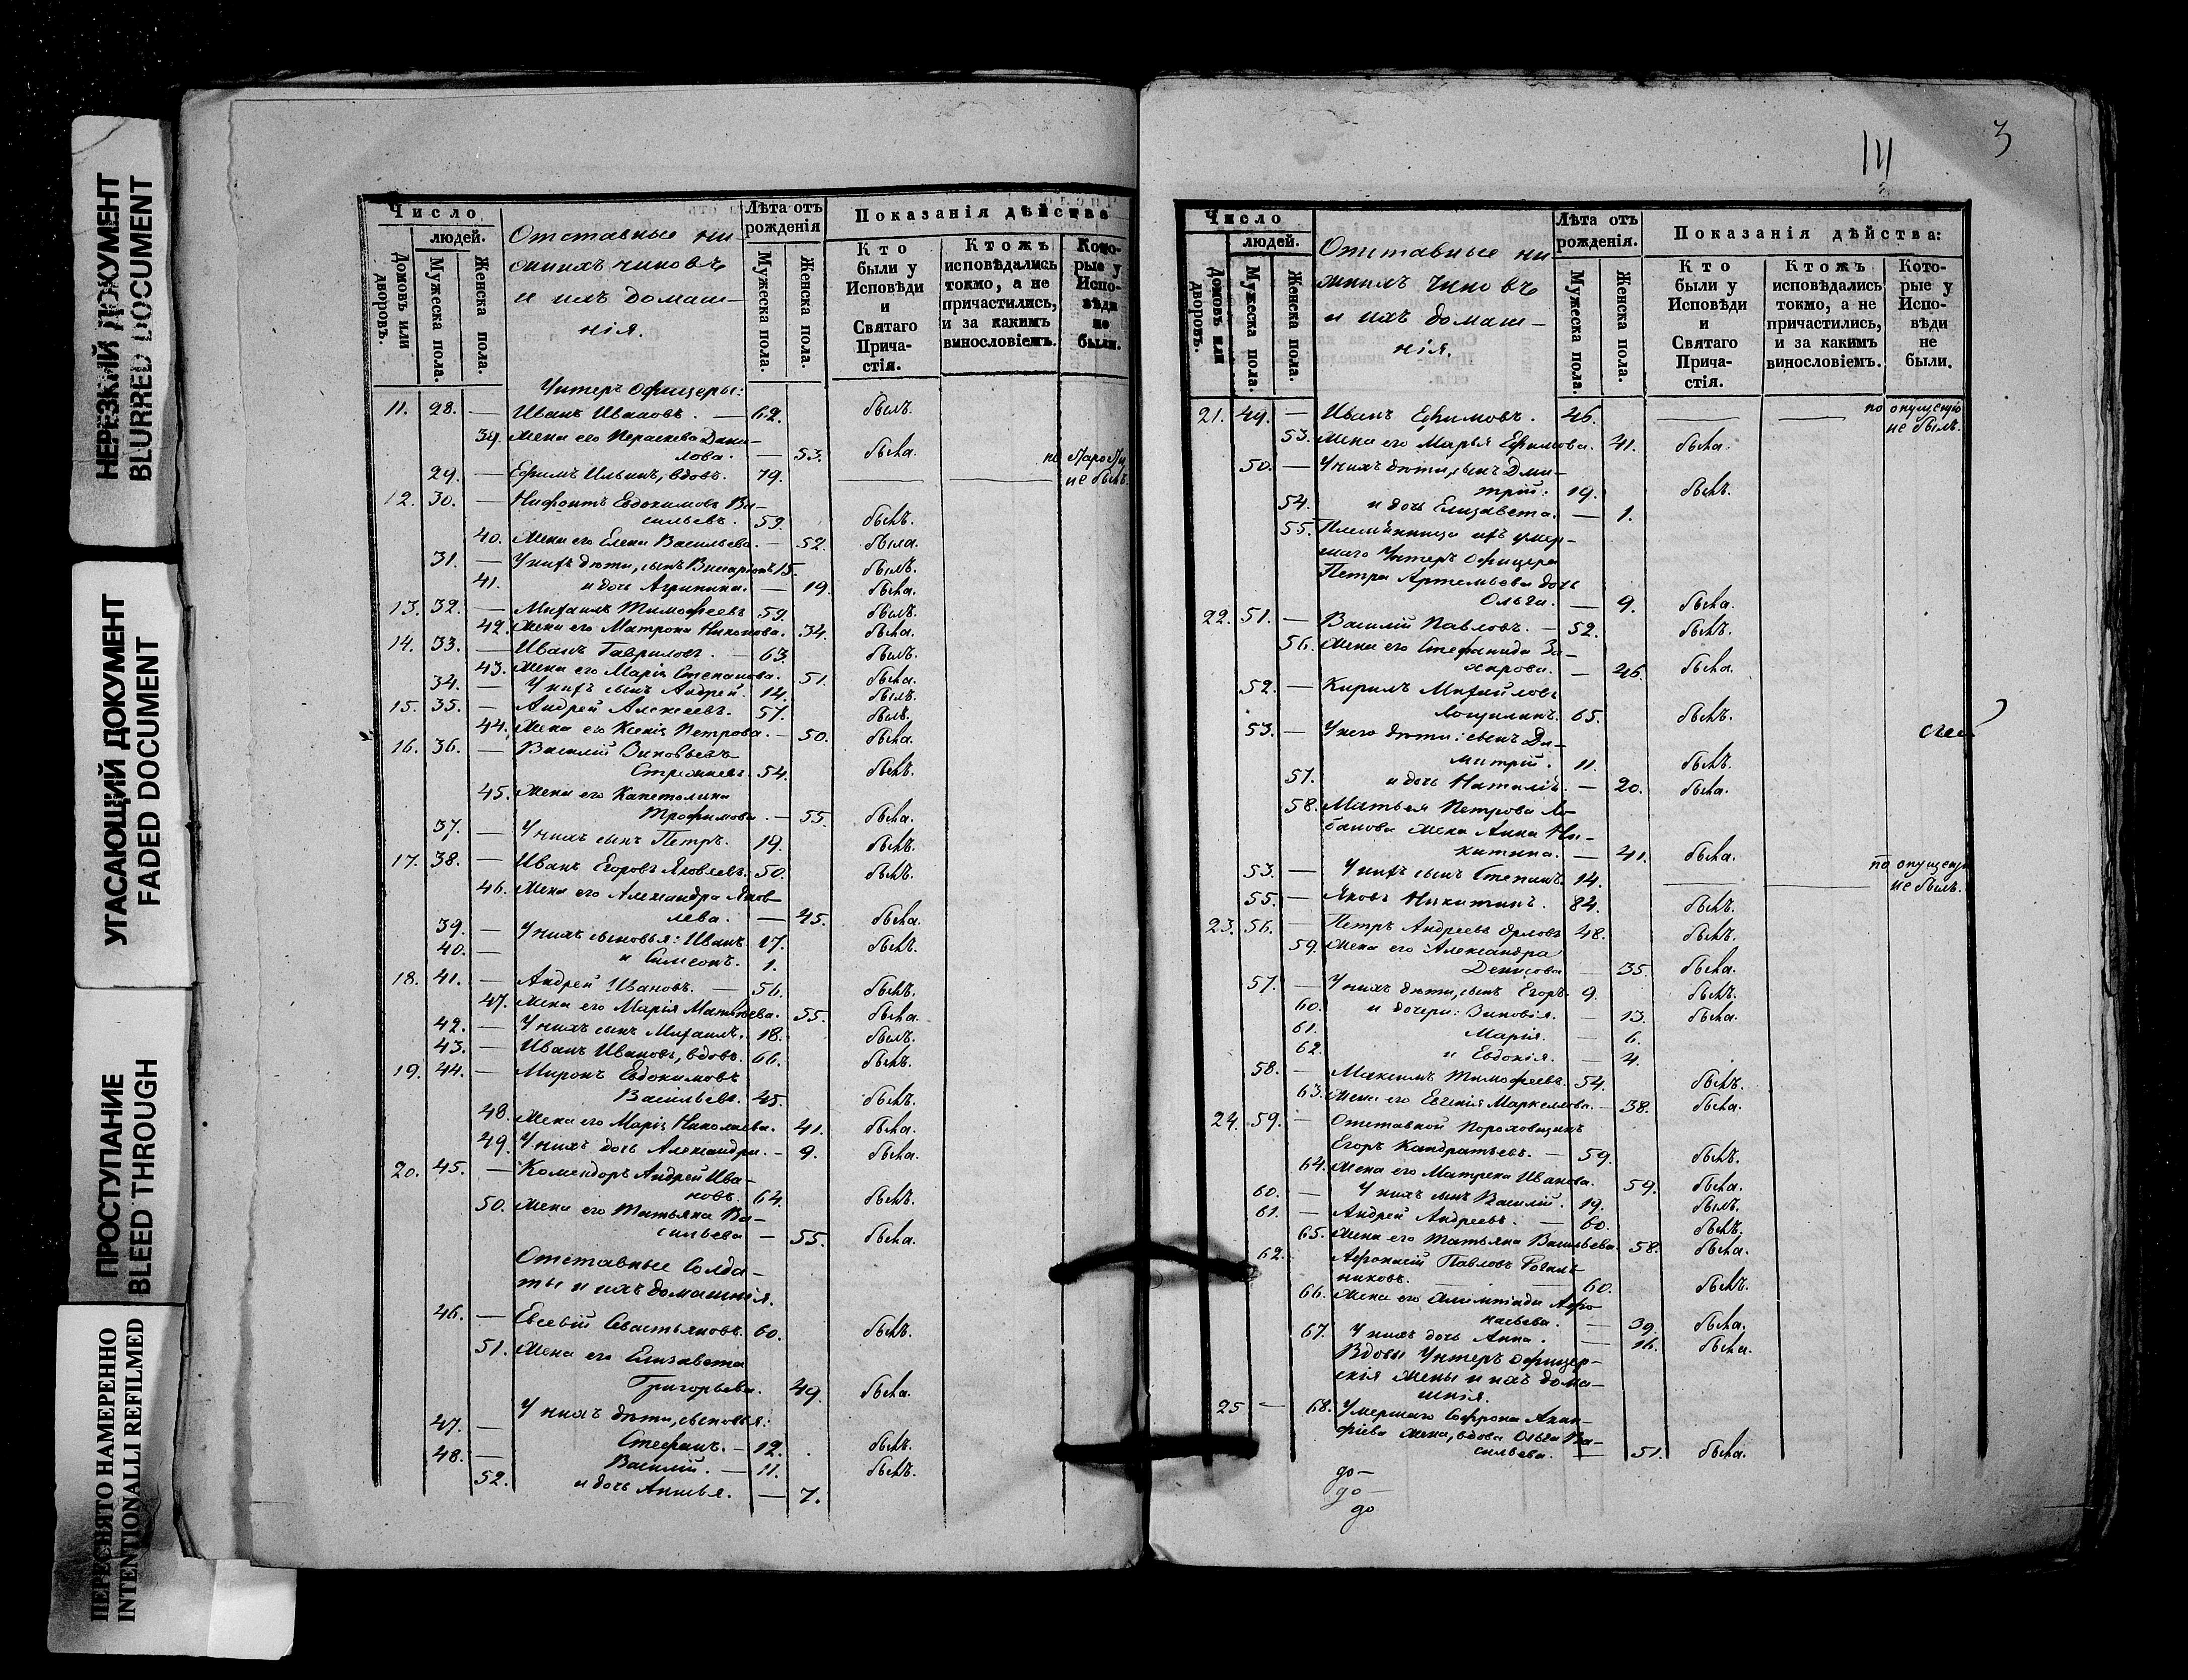 НЕРЕЗКИЙ ДОКУМЕНТ
BLURRED DOCUMENT
УГАСАЮЩИЙ ДОКУМЕНТ
FADED DOCUMENT
ПРОСТУПАНИЕ
BLEED THROUGH
ПЕРЕСНЯТО НАМЕРЕННО
INTENTIONALLI REFILMED
Число
людей.
Домовъ или дворовъ.
Мужеска пола.
Женска пола.
Отставные ни-
жнихъ чиновъ
и ихъ домаш-
нія.
Лѣта отъ рожденія
Мужеска пола.
Женска пола.
Показанія дѣйства
Кто были у Исповѣди и Святаго Прича-стія.
Ктожъ исповѣдались токмо, а не причастились, и за какимъ винословіемъ.
Кото-рые у Испо-вѣди не были.
Унтеръ Офицеры:
11. 28. — Иванъ Ивановъ. — 62. былъ.
39. Жена его Параскева Дани-
лова. — 53. была.
29. — Ефимъ Ильинъ, вдовъ. 79. не былъ.
12. 30. — Нифонтъ Евдокимовъ Ва-
сильевъ. 59. былъ.
40. Жена его Елена Васильева. — 52. была.
31. — У нихъ дѣти, сынъ Виссаріонъ 15. былъ.
41. и дочь Агрипина. — 19. была.
13. 32. — Михаилъ Тимофеевъ 59. былъ.
42. Жена его Матрона Никонова. 34. была.
14. 33. — Иванъ Гавриловъ. — 63. былъ.
43. Жена его Марія Степанова. 51. была.
34. — У нихъ сынъ Андрей. 14. былъ.
15. 35. — Андрей Алексеевъ. 57. былъ.
44. Жена его Ксенія Петрова. — 50. была.
16. 36. — Василій Зиновьевъ
54. былъ.
45. Жена его Капетолина
Трофимова. — 55. была.
37. — У нихъ сынъ Петръ. 19. былъ.
17. 38. — Иванъ Егоровъ Яковлевъ. 50. былъ.
46. Жена его Александра Яков-
лева. — 45. была.
39. — У нихъ сыновья: Иванъ. 17. былъ.
40. — и Симеонъ. 1.
18. 41. — Андрей Ивановъ. — 56. былъ.
47. Жена его Марія Матвеева. 55. была.
42. — У нихъ сынъ Михаилъ. 18. былъ.
43. — Иванъ Ивановъ, вдовъ. 66. былъ.
19. 44. — Миронъ Евдокимовъ
Васильевъ. 45. былъ.
48. Жена его Марія Николаева. 41. была.
49. У нихъ дочь Александра. — 9. была.
20. 45. — Комендоръ Андрей Ива-
новъ. 64. былъ.
50. Жена его Татьяна Ва-
сильева. — 55. была.
Отставные Солда-
ты и ихъ домашнія.
46. — Евсевій Севастьяновъ. 60. былъ.
51. Жена его Елизавета
Григорьева. 49. была.
У нихъ дѣти, сыновья:
47. — Стефанъ. — 12. былъ.
48. — Василій. — 11. былъ.
52. и дочь Анисья. — 7.
3
Число
людей.
Домовъ или дворовъ.
Мужеска пола.
Женска пола.
Отставные ни
жнихъ чиновъ
и ихъ домаш-
нія.
Лѣта отъ рожденія.
Мужеска пола.
Женска пола.
Показанія дѣйства:
Кто были у Исповѣди и Святаго Прича-стія.
Ктожъ исповѣдались токмо, а не причастились, и за какимъ винословіемъ.
Кото-рые у Испо-вѣди не были.
21. 49. — Иванъ Ефимовъ. 46. по опущенію
не былъ.
53. Жена его Марья Ефимова. 41. была.
50. — У нихъ дѣти, сынъ Дми-
трій: 19. былъ.
54. и дочь Елизавета. — 1.
55. Племянница ихъ умер-
шаго Унтеръ Офицера
Петра Артемьева дочь
Ольга. — 9. была.
22. 51. — Василій Павловъ. — 52. былъ.
56. Жена его Стефанида За-
харова. — 46. была.
52. — Кирилъ Михайловъ
65. былъ.
53. — У него дѣти: сынъ Ди-
митрій. 11. былъ.
57. и дочь Наталія. — 20. была.
58. Матвея Петрова Ло-
банова жена Анна Ни-
китина. — 41. была.
53. — У нихъ сынъ Степанъ. 14. по опущенію
не былъ.
55. — Яковъ Никитинъ. 84. былъ.
23. 56. — Петръ Андреевъ Орловъ 48. былъ.
59. Жена его Александра
Денисова — 35. была.
57. — У нихъ дѣти, сынъ Егоръ. 9. былъ.
60. и дочери: Зиновія. — 13. была.
61. Марія. — 6.
62. и Евдокія. — 4.
58. — Максимъ Тимофеевъ. 54. былъ.
63. Жена его Евгенія Маркелова. — 38. была.
24. 59. — Отставной Пороховщикъ
Егоръ Кандратьевъ. — 59. былъ.
64. Жена его Матрена Иванова. 59. была.
60. — У нихъ сынъ Василій. 19. былъ.
61. — Андрей Андреевъ. — 60. былъ.
65. Жена его Татьяна Васильева. 58. была.
62. Афонасій Павловъ
никовъ. 60. былъ.
66. Жена его Алимпіада Афо-
насьева. — 39. была.
67. У нихъ дочь Анна. — 16. была.
Вдовы Унтеръ Офицер-
скія жены и ихъ дома-
шнія.
25 — 68. Умершаго Софрона
жена, вдова Ольга Ва-
сильева. — 51. была.
до —
до —
до